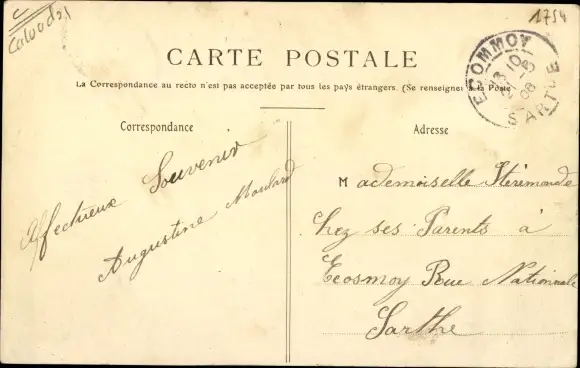 C
Calvados
1754
CARTE POSTALE
La Correspondance au recto n'est pas acceptée par tous les pays étrangers. (Se renseigner à la Poste
ECOMMOY
10
08
SARTHE
Correspondance
Adresse
Affectueux Souvenir
Augustine Moulard
Mademoiselle Stérimonde
Chez ses Parents à
Ecosmoy Rue Nationale
Sarthe